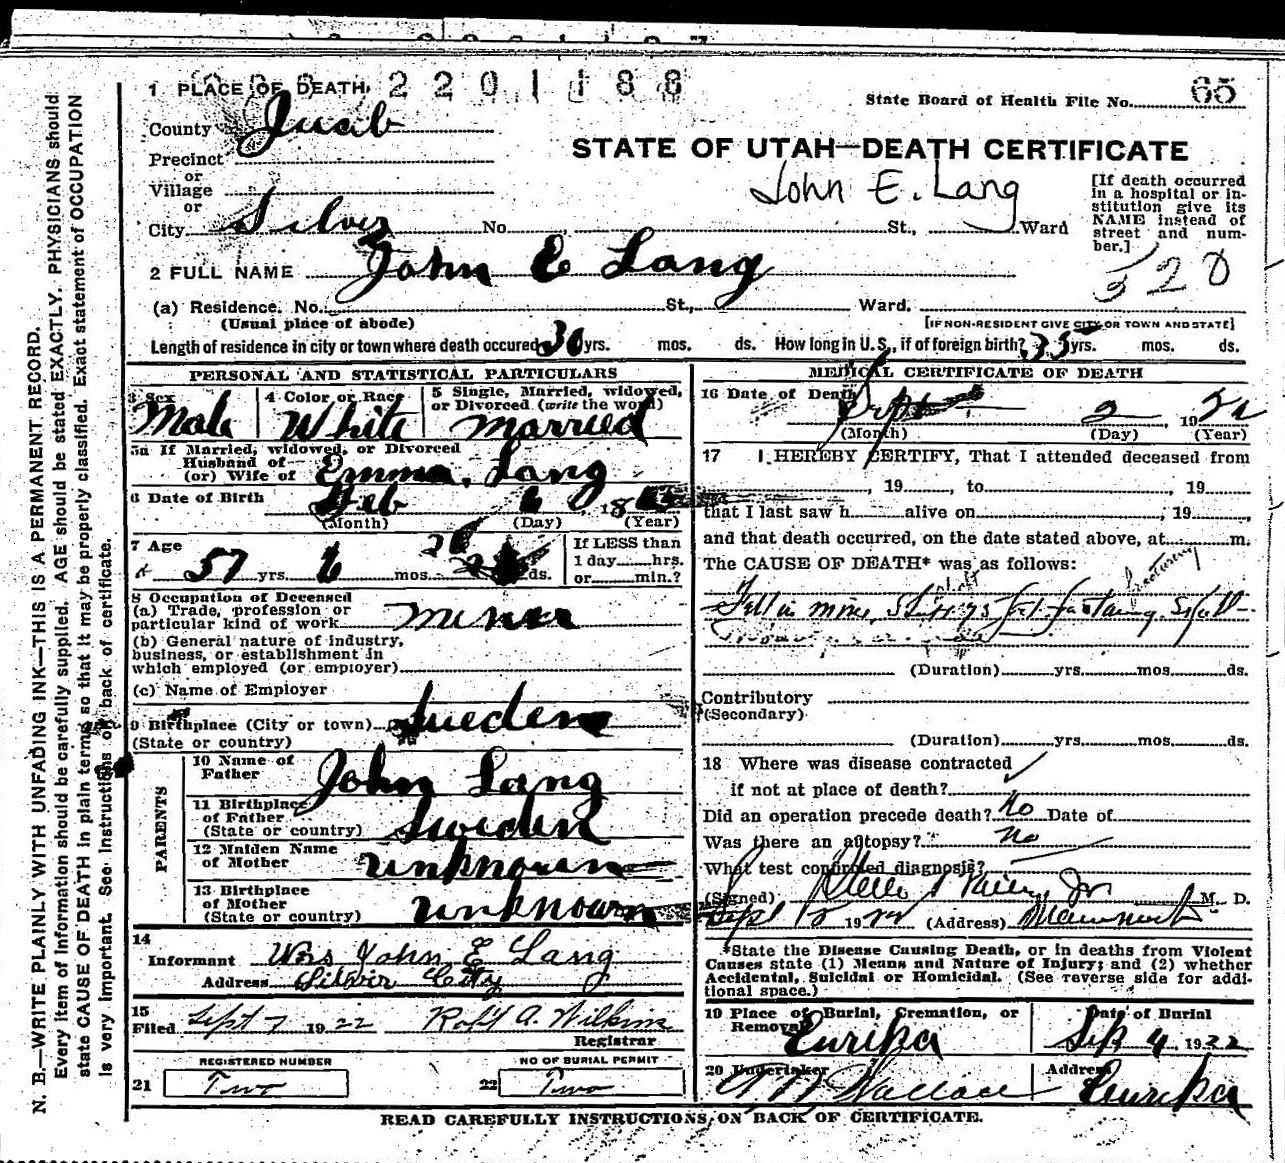 1 PLACE OF DEATH 2201188
State Board of Health File No. 65
County Juab
STATE OF UTAH—DEATH CERTIFICATE
Precinct
or
Village
or
John E. Lang
[If death occurred in a hospital or institution give its NAME instead of street and number.]
City Silver No. St., Ward
2 FULL NAME John E Lang
520
(a) Residence. No. St., Ward.
(Usual place of abode) [IF NON-RESIDENT GIVE CITY OR TOWN AND STATE]
Length of residence in city or town where death occured 30 yrs. mos. ds. How long in U.S., if of foreign birth? 35 yrs. mos. ds.
PERSONAL AND STATISTICAL PARTICULARS
3 Sex
Male
4 Color or Race
White
5 Single, Married, widowed, or Divorced (write the word)
married
5a If Married, widowed, or Divorced
Husband of
(or) Wife of Emma Lang
6 Date of Birth
Feb 6, 18
(Month) (Day) (Year)
7 Age
57 yrs. 6 mos. 26 ds.
If LESS than
1 day hrs.
or min.?
8 Occupation of Deceased
(a) Trade, profession or
particular kind of work miner
(b) General nature of industry,
business, or establishment in
which employed (or employer)
(c) Name of Employer
9 Birthplace (City or town) Sweden
(State or country)
PARENTS
10 Name of
Father John Lang
11 Birthplace
of Father
(State or country) Sweden
12 Maiden Name
of Mother unknown
13 Birthplace
of Mother
(State or country) unknown
14
Informant Mrs John E Lang
Address Silver City
15
Filed Sept 7 1922 Robt A. Wilkins
Registrar
REGISTERED NUMBER
21 Two
NO OF BURIAL PERMIT
22 Two
MEDICAL CERTIFICATE OF DEATH
16 Date of Death
Sept 2 1922
(Month) (Day) (Year)
17 I HEREBY CERTIFY, That I attended deceased from
, 19 , to , 19
that I last saw h alive on , 19
and that death occurred, on the date stated above, at m.
The CAUSE OF DEATH* was as follows:
fracturing
Fell in mine, shaft 75 ft. Skull
(Duration) yrs. mos. ds.
Contributory
(Secondary)
(Duration) yrs. mos. ds.
18 Where was disease contracted
if not at place of death?
Did an operation precede death? No Date of
Was there an autopsy? no
What test confirmed diagnosis?
(Signed) Steele Bailey Jr M. D.
Sept 1922 (Address) Mammoth
*State the Disease Causing Death, or in deaths from Violent
Causes state (1) Means and Nature of Injury; and (2) whether
Accidental, Suicidal or Homicidal. (See reverse side for addi-
tional space.)
19 Place of Burial, Cremation, or
Removal Eurika
Date of Burial
Sep 4, 1922
20 Undertaker
Wallace
Address
Eurika
READ CAREFULLY INSTRUCTIONS ON BACK OF CERTIFICATE.
N. B.—WRITE PLAINLY WITH UNFADING INK—THIS IS A PERMANENT RECORD.
Every item of information should be carefully supplied. AGE should be stated EXACTLY. PHYSICIANS should
state CAUSE OF DEATH in plain terms so that it may be properly classified. Exact statement of OCCUPATION
is very important. See instructions on back of certificate.